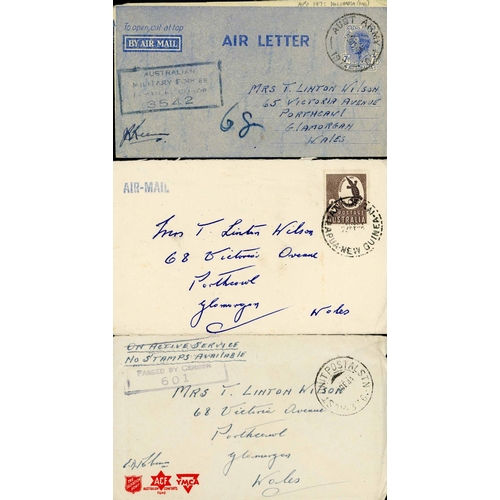 To open cut at top
BY AIR MAIL
AIR LETTER
AUST ARMY
AUSTRALIAN
MILITARY FORCES
3542
68
MRS T. LINTON WILSON
65 VICTORIA AVENUE
PORTHCAWL
GLAMORGAN
WALES
AIR-MAIL
POSTAGE
AUSTRALIA
PAPUA-NEW GUINEA
Mrs T. Linton Wilson
68 Victoria Avenue
Porthcawl
Glamorgan
Wales
ON ACTIVE SERVICE
NO STAMPS AVAILABLE
PASSED BY CENSOR
601
MRS T. LINTON WILSON
68 Victoria Avenue
Porthcawl
Glamorgan
Wales
ACF
YMCA